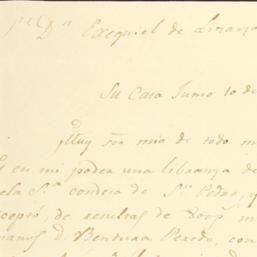 Sr. Dn Ezequiel de Lizarza
Su Casa Junio 10 de
Muy Sor mio de todo mi
en mi poder una libranza de
la Sra condesa de Sn Pedro, y
acepto, de resultas de
manos D. Bentura Peredo, con